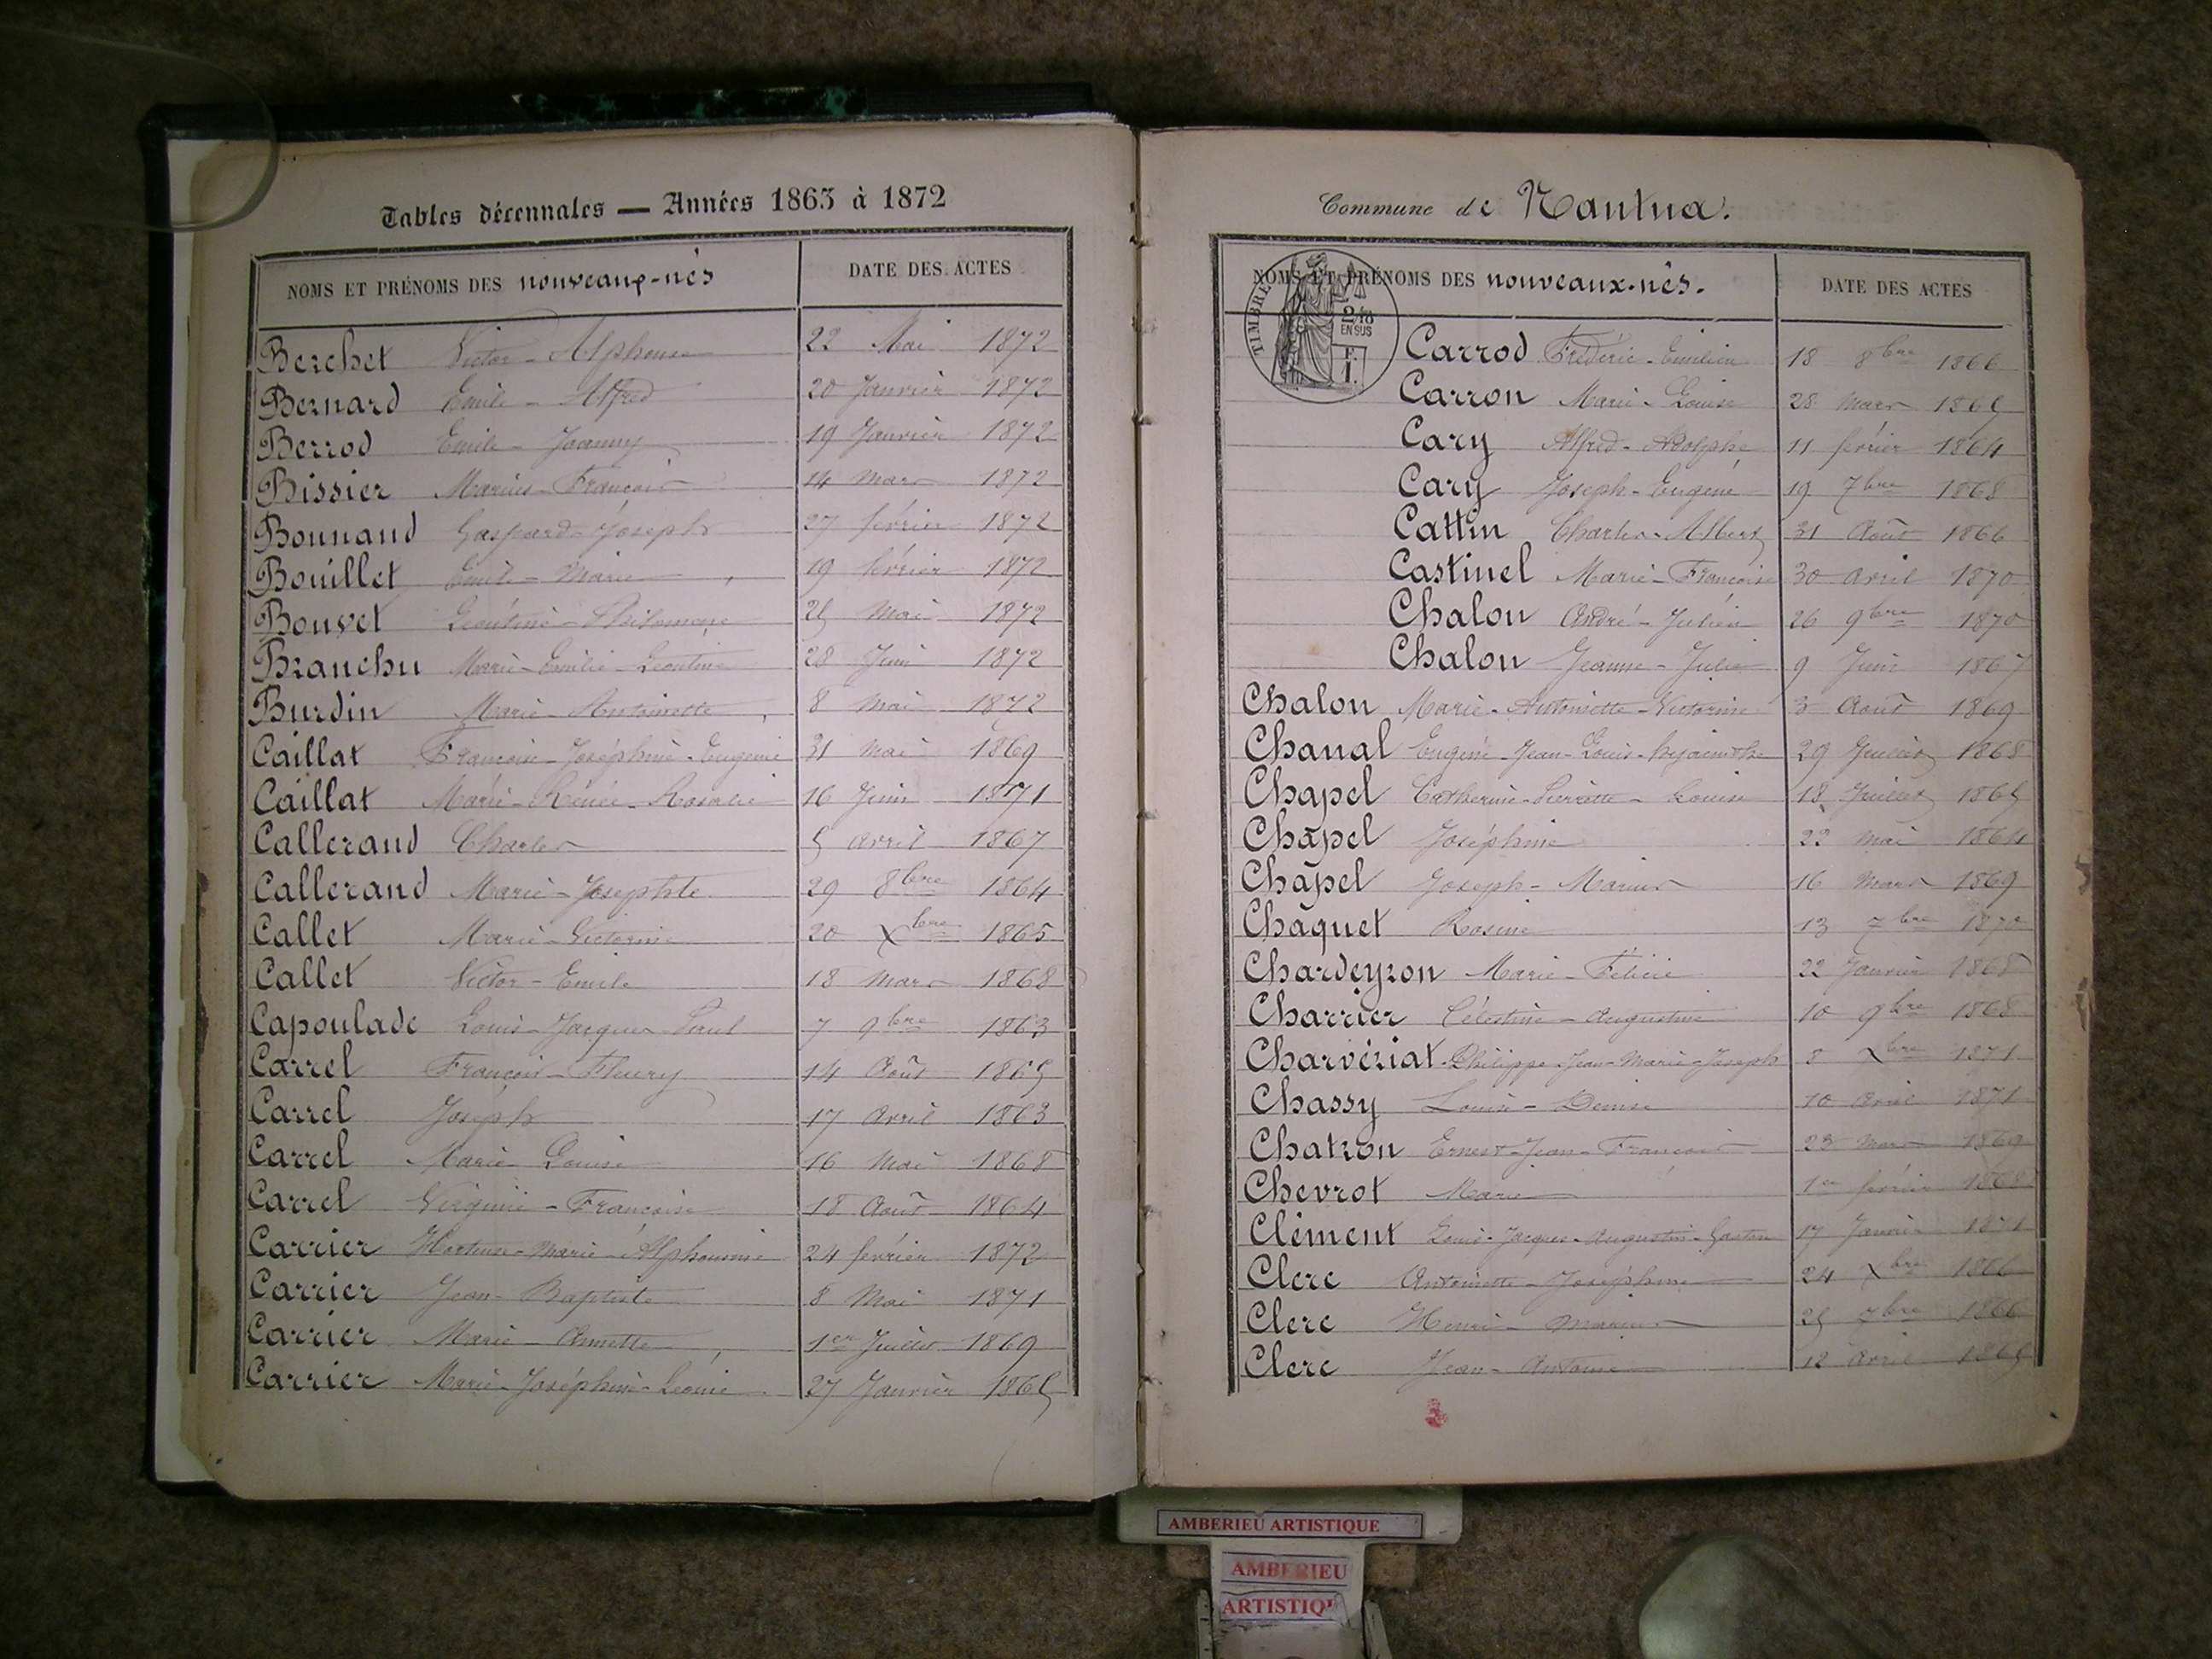 Tables décennales — Années 1863 à 1872
NOMS ET PRÉNOMS DES nouveaux-nés DATE DES ACTES
Berchet Victor-Alphonse 22 Mai 1872
Bernard Emile-Alfred 20 Janvier 1872
Berrod Emile-Joanny 19 Janvier 1872
Bissier Marius-François 14 Mars 1872
Bonnand Gaspard-Joseph 27 février 1872
Bouillet Emile-Marie 19 février 1872
Bouvet Léontine-Philomène 25 Mai 1872
Branchu Marie-Emilie-Léontine 28 Juin 1872
Burdin Marie-Antoinette 8 Mai 1872
Caillat Françoise-Joséphine-Eugénie 31 Mai 1869
Caillat Marie-Rénée-Rosalie 16 Juin 1871
Callerand Charles 5 avril 1867
Callerand Marie-Josephte 29 8bre 1864
Callet Marie-Victorine 20 Xbre 1865
Callet Victor-Emile 18 Mars 1868
Capoulade Louis-Jacques-Paul 7 9bre 1863
Carrel François-Fleury 14 Août 1865
Carrel Joseph 17 Avril 1863
Carrel Marie-Louise 16 Mai 1868
Carrel Virginie-Françoise 18 Août 1864
Carrier Hortense-Marie-Alphonsine 24 février 1872
Carrier Jean-Baptiste 8 Mai 1871
Carrier Marie-Annette 1er Juillet 1869
Carrier Marie-Joséphine-Léonie 27 Janvier 1865
Commune de Nantua.
NOMS ET PRÉNOMS DES nouveaux-nés. DATE DES ACTES
TIMBRE
2/10
EN SUS
F.
1.
Carrod Frédéric-Emilien 18 8bre 1866
Carron Marie-Louise 28 Mars 1865
Cary Alfred-Adolphe 11 février 1864
Cary Joseph-Eugène 19 7bre 1868
Cattin Charles-Albert 31 Août 1866
Castinel Marie-Françoise 30 Avril 1870
Chalon André-Julien 26 9bre 1870
Chalon Jeanne-Julie 9 Juin 1867
Chalon Marie-Antoinette-Victorine 3 Août 1869
Chanal Eugène-Jean-Louis-hyacinthe 29 Juillet 1868
Chapel Catherine-Pierrette-Louise 18 Juillet 1865
Chapel Joséphine 22 Mai 1864
Chapel Joseph-Marius 16 Mars 1869
Chaquet Rosine 13 7bre 1870
Chardeyron Marie-Félicie 22 Janvier 1868
Charrier Célestine-Augustine 10 9bre 1868
Charvériat Philippe-Jean-Marie-Joseph 8 Xbre 1871
Chassy Louis-Denise 10 Avril 1871
Chatron Ernest-Jean-François 23 Mars 1869
Chevrot Marie 1er février 1868
Clément Louis-Jacques-Augustin-Gaston 17 Janvier 1871
Clerc Antoinette-Joséphine 24 Xbre 1866
Clerc Henri-Marius 25 7bre 1866
Clerc Jean-Antoine 12 Avril 1865
AMBERIEU ARTISTIQUE
AMBERIEU
ARTISTIQU